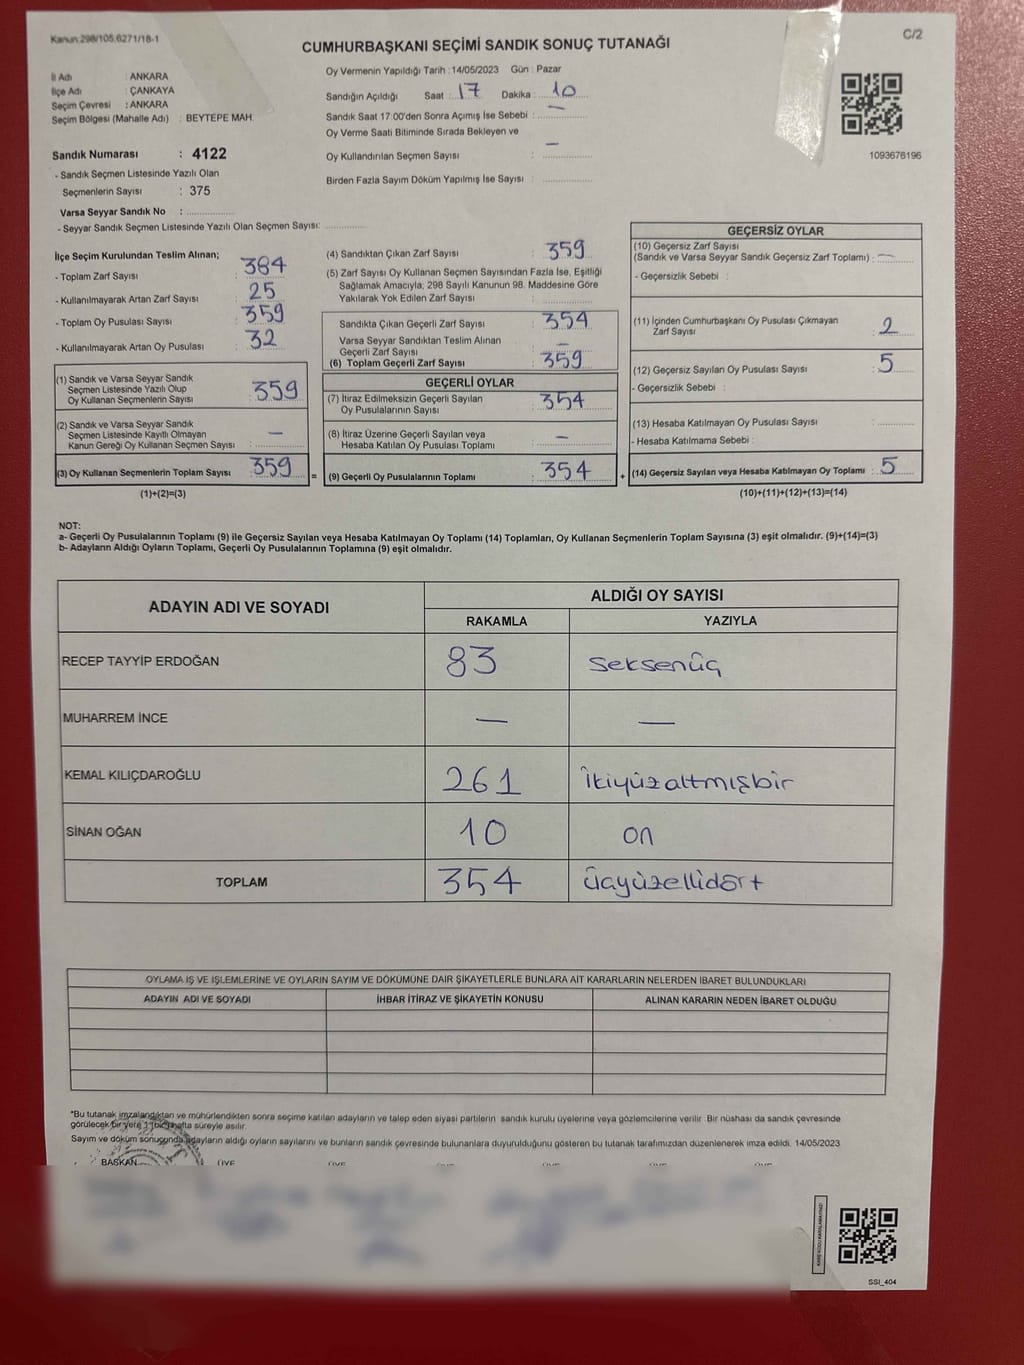 Kanun:298/105;6271/18-1
C/2
CUMHURBAŞKANI SEÇİMİ SANDIK SONUÇ TUTANAĞI
İl Adı : ANKARA
İlçe Adı : ÇANKAYA
Seçim Çevresi : ANKARA
Seçim Bölgesi (Mahalle Adı) : BEYTEPE MAH.
Sandık Numarası : 4122
- Sandık Seçmen Listesinde Yazılı Olan
Seçmenlerin Sayısı : 375
Varsa Seyyar Sandık No :
- Seyyar Sandık Seçmen Listesinde Yazılı Olan Seçmen Sayısı:
Oy Vermenin Yapıldığı Tarih :14/05/2023 Gün : Pazar
Sandığın Açıldığı Saat : 17 Dakika : 10
Sandık Saat 17:00'den Sonra Açımış İse Sebebi : —
Oy Verme Saati Bitiminde Sırada Bekleyen ve
Oy Kullandırılan Seçmen Sayısı : —
Birden Fazla Sayım Döküm Yapılmış İse Sayısı :
1093676196
İlçe Seçim Kurulundan Teslim Alınan;
- Toplam Zarf Sayısı : 384
- Kullanılmayarak Artan Zarf Sayısı : 25
- Toplam Oy Pusulası Sayısı : 359
- Kullanılmayarak Artan Oy Pusulası : 32
(1) Sandık ve Varsa Seyyar Sandık
Seçmen Listesinde Yazılı Olup
Oy Kullanan Seçmenlerin Sayısı : 359
(2) Sandık ve Varsa Seyyar Sandık
Seçmen Listesinde Kayıtlı Olmayan
Kanun Gereği Oy Kullanan Seçmen Sayısı : —
(3) Oy Kullanan Seçmenlerin Toplam Sayısı : 359
(1)+(2)=(3)
(4) Sandıktan Çıkan Zarf Sayısı : 359
(5) Zarf Sayısı Oy Kullanan Seçmen Sayısından Fazla İse, Eşitliği
Sağlamak Amacıyla, 298 Sayılı Kanunun 98. Maddesine Göre
Yakılarak Yok Edilen Zarf Sayısı :
Sandıkta Çıkan Geçerli Zarf Sayısı : 354
Varsa Seyyar Sandıktan Teslim Alınan
Geçerli Zarf Sayısı : —
(6) Toplam Geçerli Zarf Sayısı : 359
GEÇERLİ OYLAR
(7) İtiraz Edilmeksizin Geçerli Sayılan
Oy Pusulalarının Sayısı : 354
(8) İtiraz Üzerine Geçerli Sayılan veya
Hesaba Katılan Oy Pusulası Toplamı : —
= (9) Geçerli Oy Pusulalarının Toplamı : 354 +
GEÇERSİZ OYLAR
(10) Geçersiz Zarf Sayısı
(Sandık ve Varsa Seyyar Sandık Geçersiz Zarf Toplamı) : —
- Geçersizlik Sebebi :
(11) İçinden Cumhurbaşkanı Oy Pusulası Çıkmayan
Zarf Sayısı : 2
(12) Geçersiz Sayılan Oy Pusulası Sayısı : 5
- Geçersizlik Sebebi :
(13) Hesaba Katılmayan Oy Pusulası Sayısı :
- Hesaba Katılmama Sebebi :
(14) Geçersiz Sayılan veya Hesaba Katılmayan Oy Toplamı : 5
(10)+(11)+(12)+(13)=(14)
NOT:
a- Geçerli Oy Pusulalarının Toplamı (9) ile Geçersiz Sayılan veya Hesaba Katılmayan Oy Toplamı (14) Toplamları, Oy Kullanan Seçmenlerin Toplam Sayısına (3) eşit olmalıdır. (9)+(14)=(3)
b- Adayların Aldığı Oyların Toplamı, Geçerli Oy Pusulalarının Toplamına (9) eşit olmalıdır.
ADAYIN ADI VE SOYADI
ALDIĞI OY SAYISI
RAKAMLA YAZIYLA
RECEP TAYYİP ERDOĞAN 83 seksenüç
MUHARREM İNCE — —
KEMAL KILIÇDAROĞLU 261 ikiyüzaltmışbir
SİNAN OĞAN 10 on
TOPLAM 354 üçyüzellidört
OYLAMA İŞ VE İŞLEMLERİNE VE OYLARIN SAYIM VE DÖKÜMÜNE DAİR ŞİKAYETLERLE BUNLARA AİT KARARLARIN NELERDEN İBARET BULUNDUKLARI
ADAYIN ADI VE SOYADI İHBAR İTİRAZ VE ŞİKAYETİN KONUSU ALINAN KARARIN NEDEN İBARET OLDUĞU
*Bu tutanak imzalandıktan ve mühürlendikten sonra seçime katılan adayların ve talep eden siyasi partilerin sandık kurulu üyelerine veya gözlemcilerine verilir. Bir nüshası da sandık çevresinde
görülecek bir yere 1 (bir) hafta süreyle asılır.
Sayım ve döküm sonucunda adayların aldığı oyların sayılarını ve bunların sandık çevresinde bulunanlara duyurulduğunu gösteren bu tutanak tarafımızdan düzenlenerek imza edildi. 14/05/2023
BAŞKAN ÜYE ÜYE ÜYE ÜYE ÜYE ÜYE
SSI_404